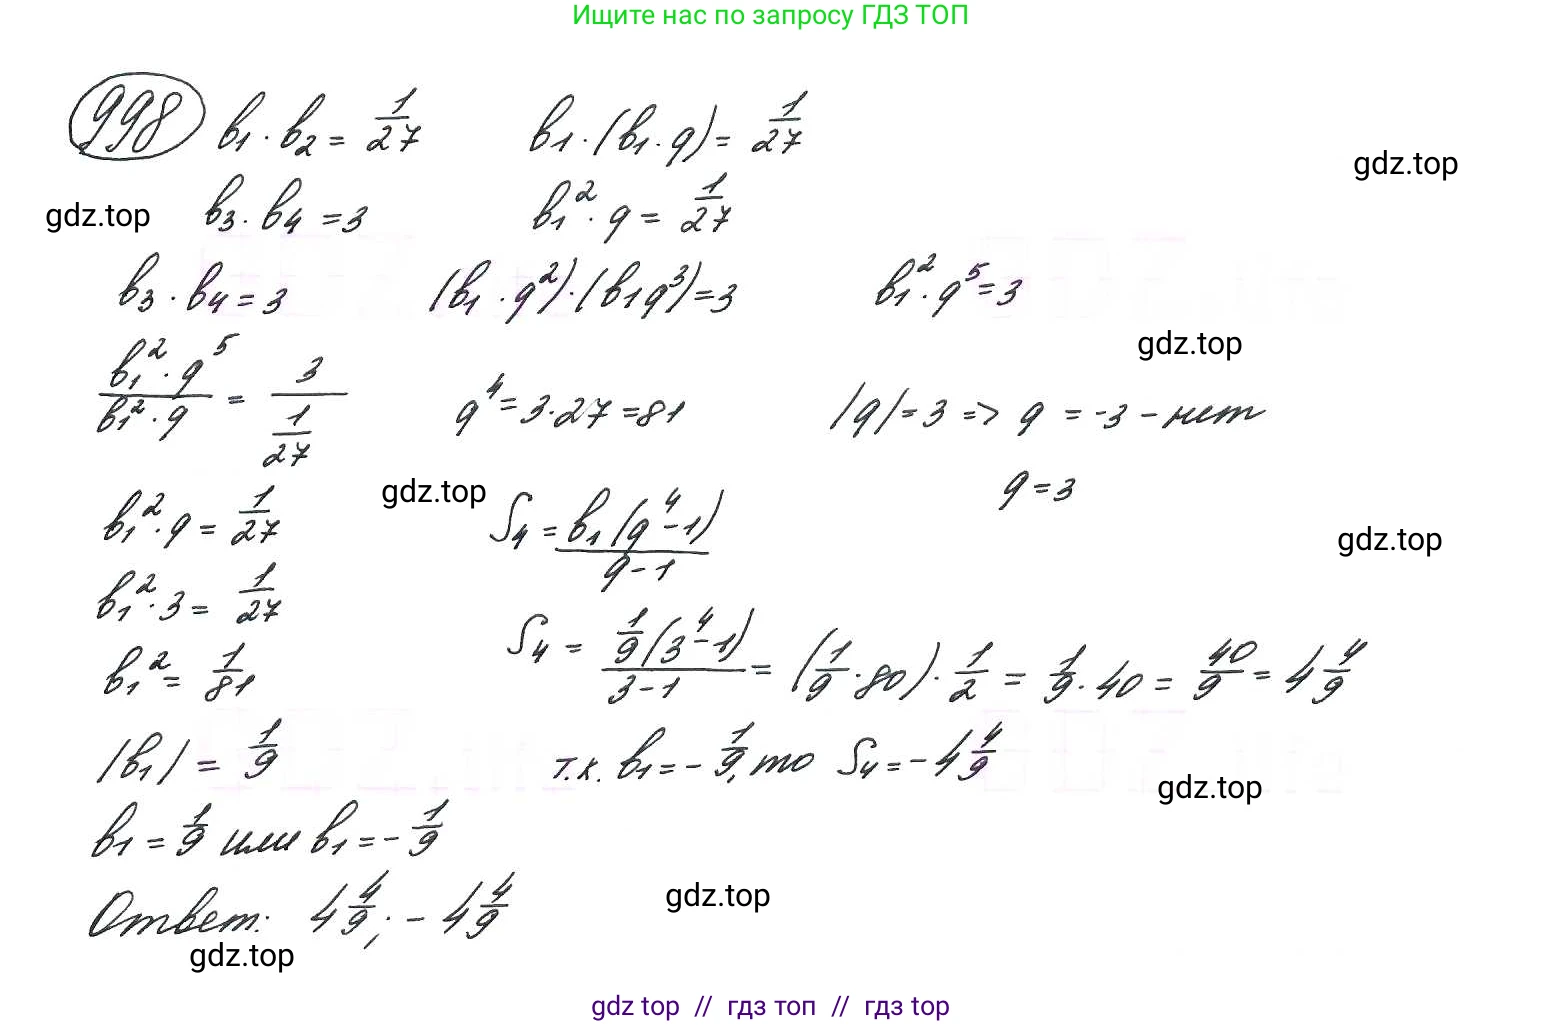 Ищите нас по запросу ГДЗ ТОП
998 b₁ · b₂ = 1/27 b₁ · (b₁ · q) = 1/27
gdz.top
gdz.top b₃ · b₄ = 3 b₁² · q = 1/27
b₃ · b₄ = 3 (b₁ · q²) · (b₁q³) = 3 b₁² · q⁵ = 3
gdz.top
(b₁² · q⁵)/(b₁² · q) = 3/(1/27) q⁴ = 3 · 27 = 81 |q| = 3 => q = -3 - нет
q = 3
gdz.top
b₁² · q = 1/27 S₄ = b₁(q⁴ - 1)/(q - 1)
gdz.top
b₁² · 3 = 1/27
b₁² = 1/81 S₄ = 1/9(3⁴ - 1)/(3 - 1) = (1/9 · 80) · 1/2 = 1/9 · 40 = 40/9 = 4 4/9
|b₁| = 1/9 т.к. b₁ = - 1/9, то S₄ = - 4 4/9
gdz.top
b₁ = 1/9 или b₁ = - 1/9
Ответ: 4 4/9; - 4 4/9
gdz.top
gdz.top
gdz top // гдз топ // гдз top